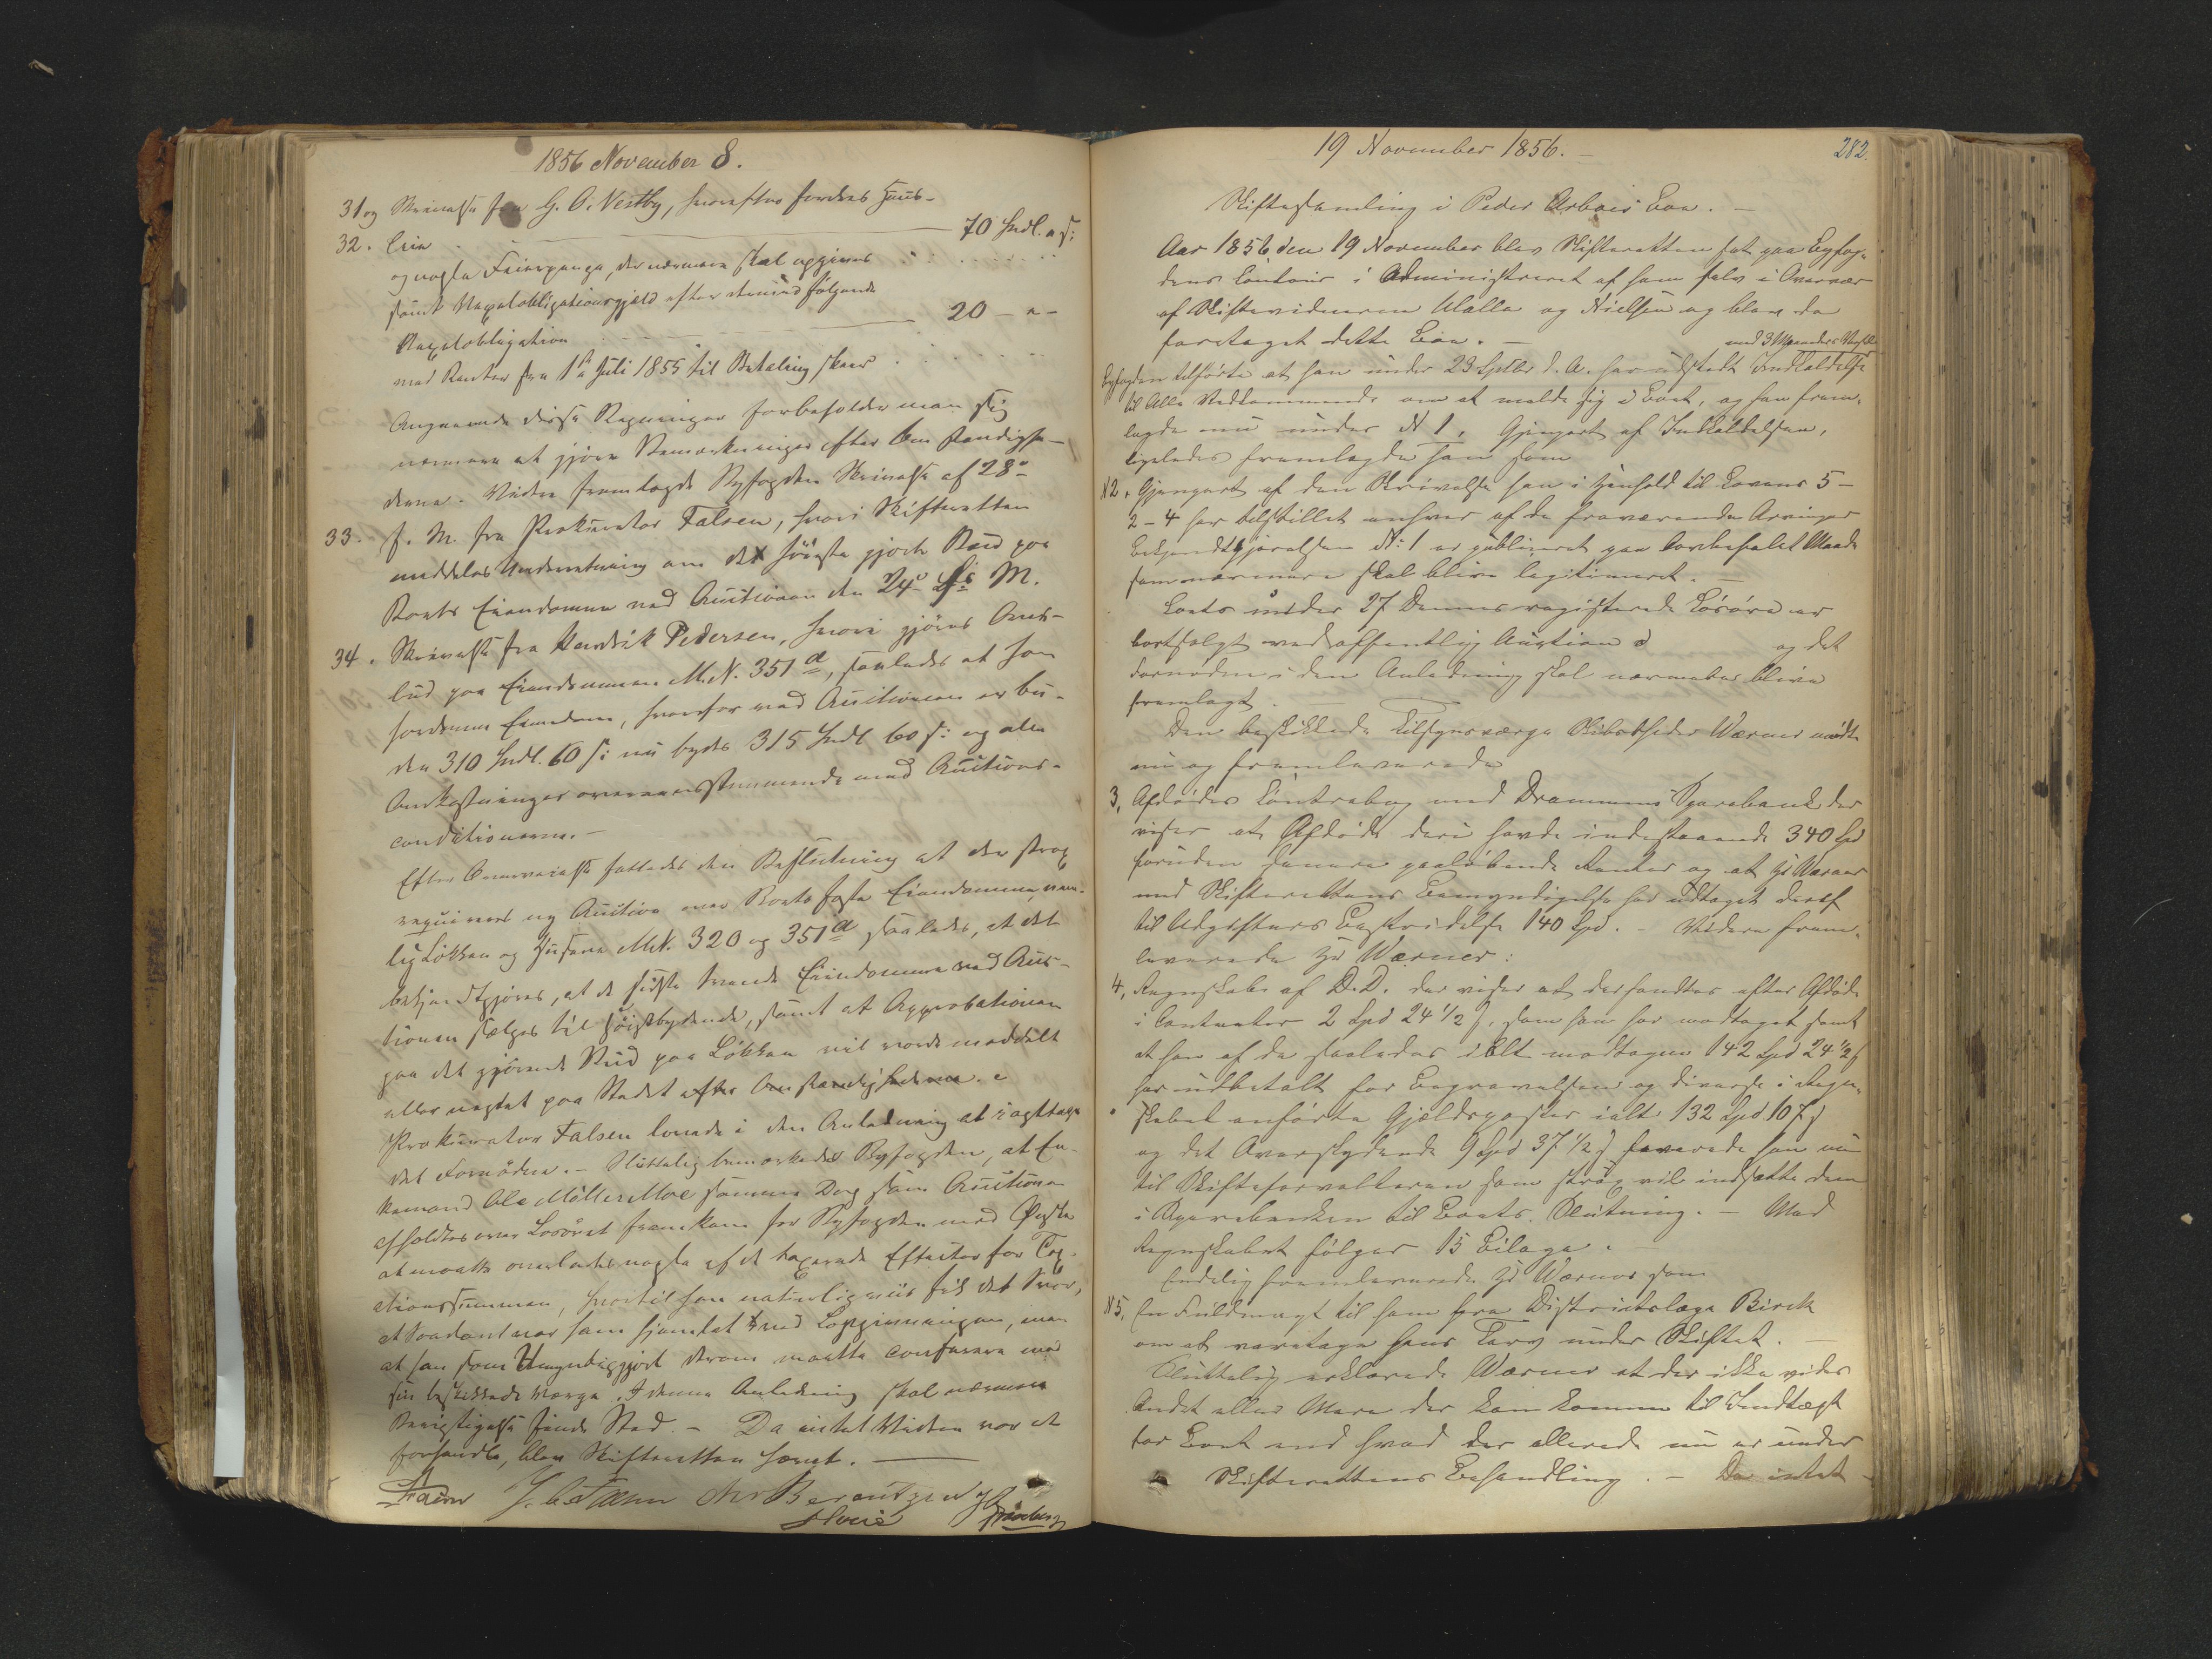 1856 November 8.
31 og Skrivelse fra G. O. Vestby, hvorefter fordres Huus-
32. leie 70 Spdl. " s:
og nogle Faierpenge, der nærmere skal opgives
samt Vexelobligationsgjæld efter medfølgende
Vexelobligation 20 — " —
med Renter fra 1ste Juli 1855 til Betaling skeer.
Angaaende disse Regninger forbeholder man sig
nærmere at gjøre Bemærkninger efter Omstændighe-
derne. Videre fremlagde Byfogden Skrivelse af 28de
33. f. M. fra Prokurator Falsen, hvori Skifteretten
meddeles Underretning om det høieste gjorte Bud paa
Boets Eiendomme ved Auctionen den 24de ds M.
34. Skrivelse fra Hendrik Pedersen, hvori gjøres Over-
bud paa Eiendommen M.N. 351 a, saaledes at han
for denne Eiendom, hvorfor ved Auctionen er bu-
den 310 Spdl. 60 s: nu byder 315 Spdl 60 s: og alle
Omkostninger overeensstemmende med Auctions-
conditionerne. —
Efter Omerviselse fattedes den Beslutning at der strax
requireres ny Auction over Boets faste Eiendomme, nem-
lig Løkken og Husene M.N. 320 og 351 a saaledes, at det
bekjendtgjøres, at de sidste tvende Eiendomme ved Auc-
tionen sælges til Høistbydende, samt at Approbationen
paa det gjørende Bud paa Løkken vil vorde meddelt
eller negtet paa Stedet efter Omstændighederne. —
Prokurator Falsen lovede i den Anledning at iagttage
det Fornødne. — Sluttelig bemærkedes Byfogden, at En-
kemand Ole Møller Moe samme Dag som Auctionen
afholdtes over Løsøret fremkom for Byfogden med Ønske
at maatte overlades nogle af de taxerede Effecter for Tax-
ationssummen, hvortil han naturligviis fik det Svar,
at Saadant var ham hjemlet ved Lovgivningen, men
at han som Umyndiggjort derom maatte conferere med
sin beskikkede Værge. I denne Anledning skal nærmere
Berigtigelse finde Sted. — Da intet Videre var at
forhandle, blev Skifteretten hævet. —
19 November 1856. —
282.
Skiftesamling i Peder Arbois Boe. —
Aar 1856 den 19 November blev Skifteretten sat paa Byfog-
dens Contoir i Administreret af ham selv i Overvær
af Skiftevidnerne Ulalla og Nielsen og blev da
foretaget dette Boe. — med 3 Maaneders Varsel
Byfogden tilførte at han under 23 Septbr d. A. har udstedt Indkaldelse
til Alle Vedkommende om at melde sig i Boet, og han frem-
lagde nu under N 1. Gjenpart af Indkaldelsen,
ligeledes fremlagde han som
N 2. Gjenpart af den Skrivelse han i Henhold til Lovens 5 —
2 — 4 har tilstillet enhver af de fraværende Arvinger
Bekjendtgjørelsen N: 1 er publiceret paa lovbefalet Maade
som nærmere skal blive legitimeret. —
Boets under 27 Dennes registrerede Løsøre er
bortsolgt ved offentlig Auction d og det
Fornødne i den Anledning skal nærmere blive
fremlagt. —
Den beskikkede Tilsynsværge Skibsrheder Wærner mødte
nu og fremleverede
3, Afdødes Contrabog med Drammens Sparebank der
viser at Afdøde deri havde indestaaende 340 Spd
foruden senere paaløbende Renter og at Hr Wærner
med Skifterettens Bemyndigelse har udtaget deraf
til Udgifters Bestridelse 140 Spd. — Videre frem-
leverede Hr Wærner:
4, Regnskab af D.D. der viser at der fandtes efter Afdøde
i Contanter 2 Spd 24 1/2 s, som han har modtaget samt
at han af de saaledes ialt modtagne 142 Spd 24 1/2 s
har udbetalt for Begravelsen og diverse i Regn-
skabet anførte Gjældsposter ialt 132 Spd 107 s
og det Overskydende 9 Spd 37 1/2 s leverede han nu
til Skifteforvalteren som strax vil indsætte dem
i Sparebanken til Boets Slutning. — Med
Regnskabet følger 15 Bilage.
Endelig fremleverede Hr Wærner som
N 5, En Fuldmagt til ham fra Districtslæge Birch
om at varetage hans Tarv under Skiftet. —
Sluttelig erklærede Wærner at der ikke vides
Andet eller Mere der kan komme til Indtægt
for Boet end hvad der allerede nu er under
Skifterettens Behandling. — Da intet